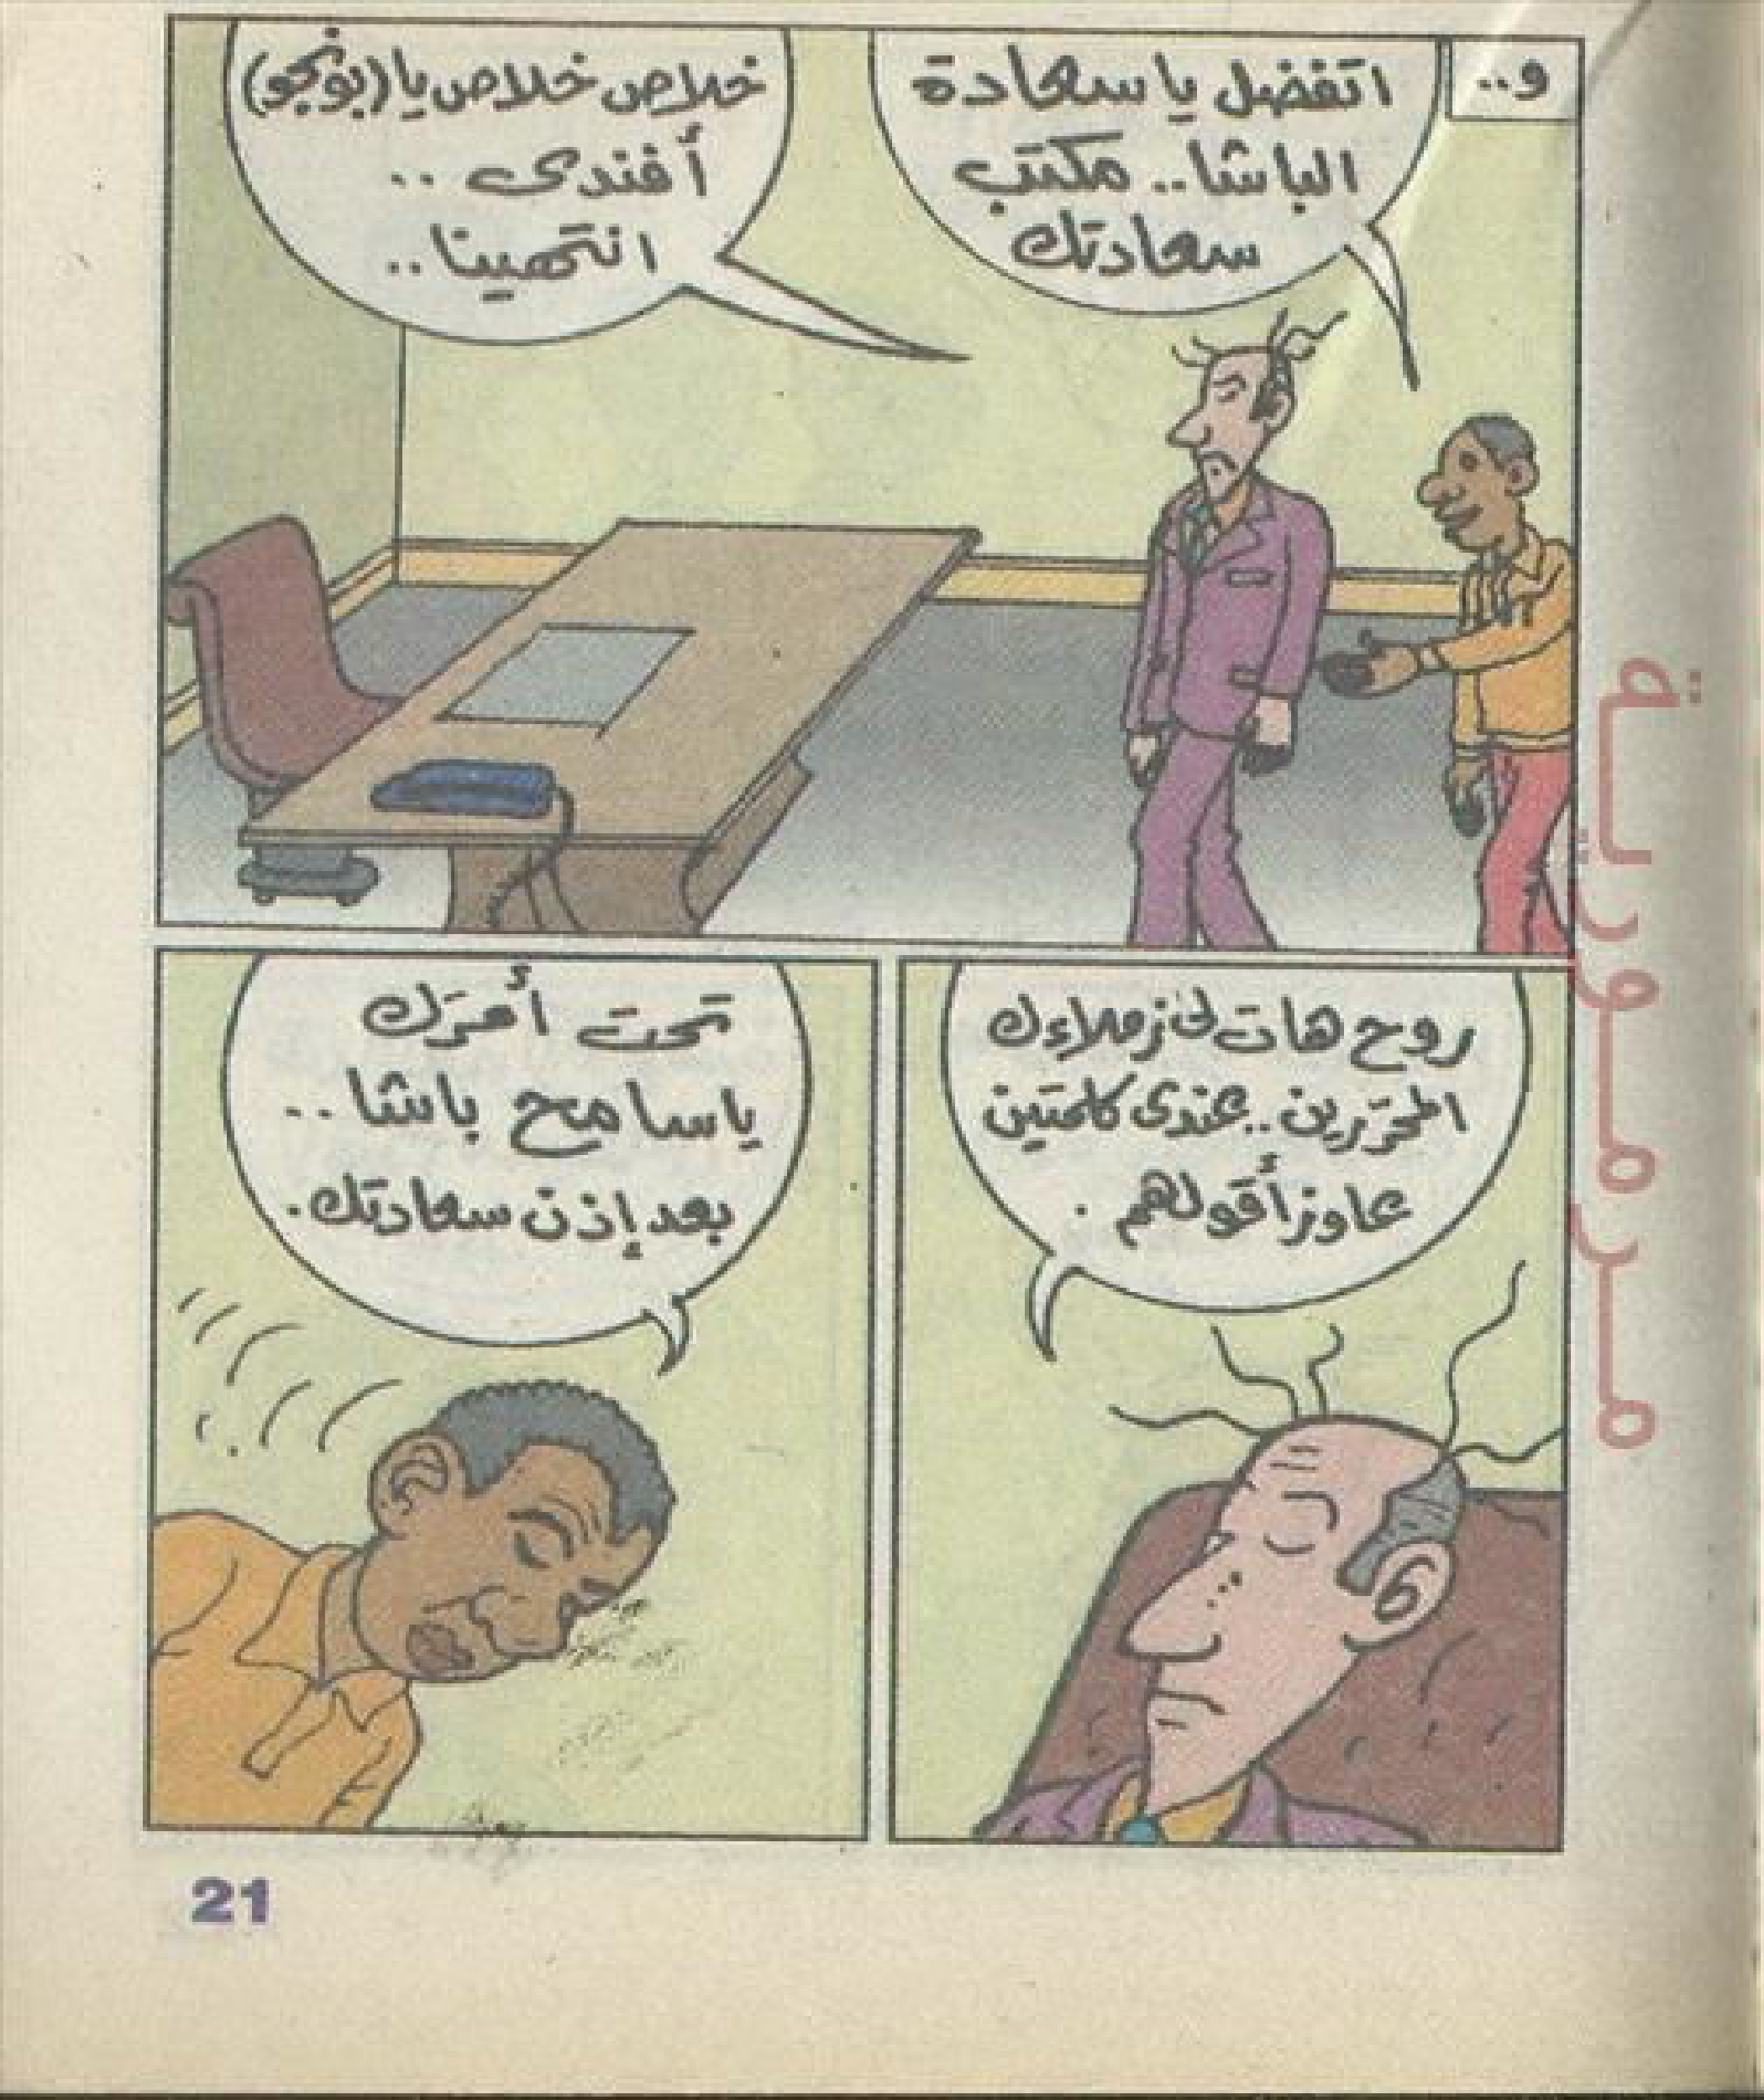 و..
اتفضل يا سعادة
الباشا.. مكتب
سعادتك
خلاص خلاص يا (بونجو)
أفندى ..
انتهينا..
روح هات لى زملاءك
المحررين.. عندى كلمتين
عاوز أقولهم .
تحت أمرك
يا سامح باشا ..
بعد إذن سعادتك.
21
مرمورية